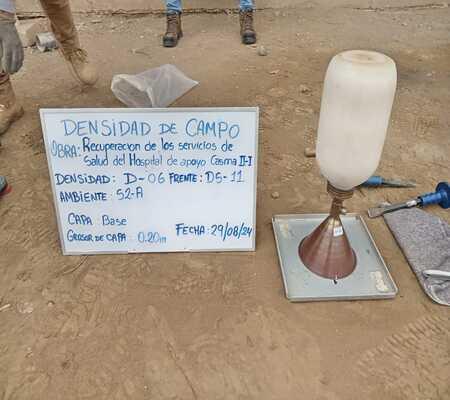 DENSIDAD DE CAMPO
OBRA: Recuperacion de los servicios de
Salud del Hospital de apoyo Casma II-I
DENSIDAD: D-06 FRENTE: D5-11
AMBIENTE: S2-A
CAPA: Base
GROSOR DE CAPA: 0.20m FECHA: 29/08/24